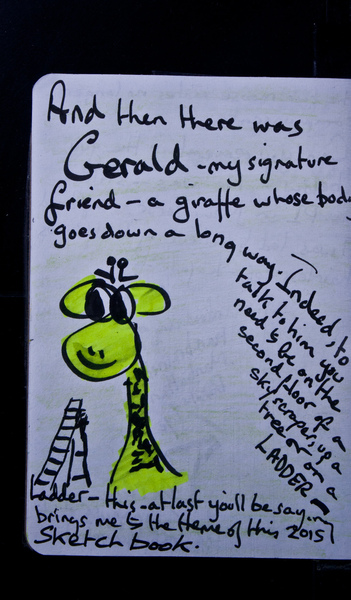 And then there was
Gerald - my signature
friend - a giraffe whose body
goes down a long way. Indeed, to
talk to him you
need to be on the
second floor of a
skyscraper, up a
tree or on a
LADDER -
Ladder - this - at last you'll be saying
brings me to the theme of this 2015
Sketch book.